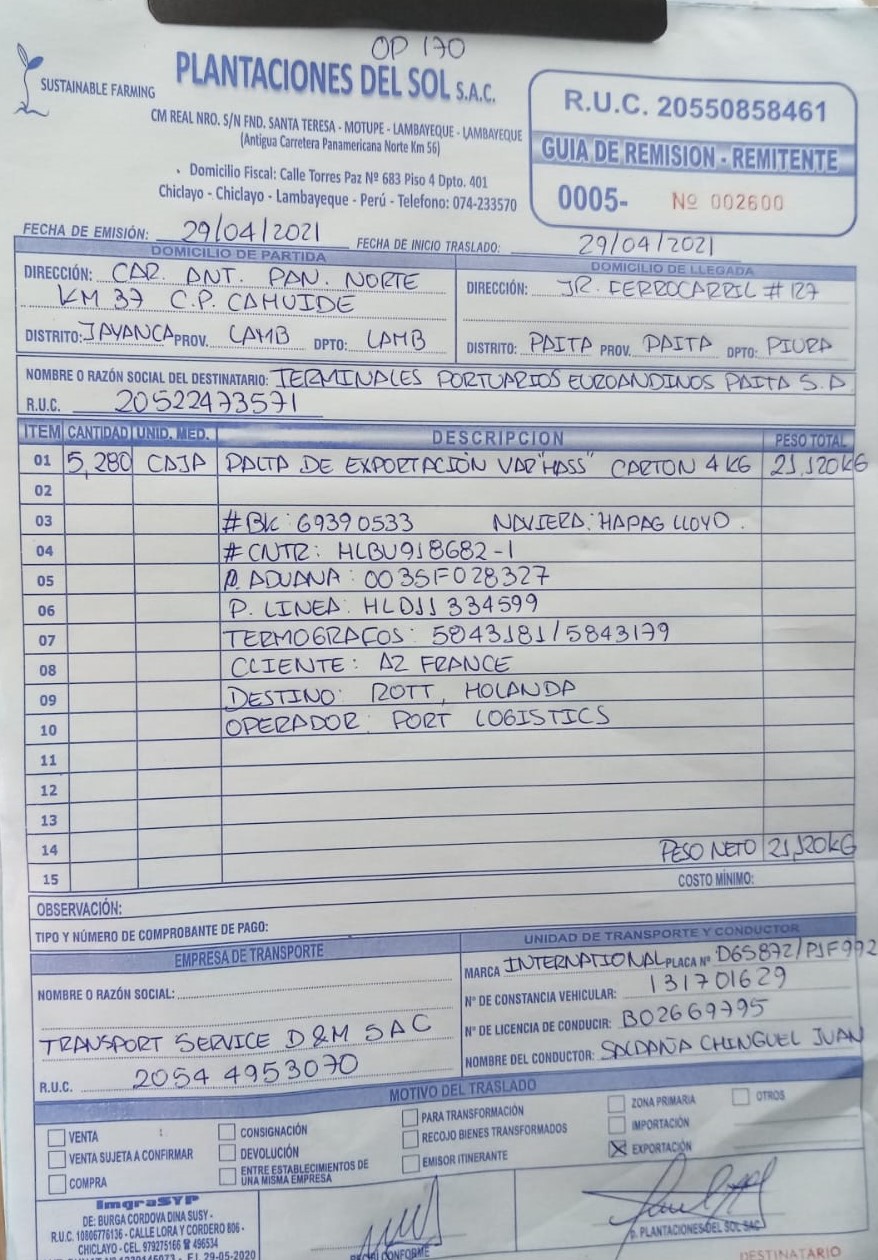 OP 170
SUSTAINABLE FARMING
PLANTACIONES DEL SOL S.A.C.
CM REAL NRO. S/N FND. SANTA TERESA - MOTUPE - LAMBAYEQUE - LAMBAYEQUE
(Antigua Carretera Panamericana Norte Km 56)
Domicilio Fiscal: Calle Torres Paz Nº 683 Piso 4 Dpto. 401
Chiclayo - Chiclayo - Lambayeque - Perú - Telefono: 074-233570
R.U.C. 20550858461
GUIA DE REMISION - REMITENTE
0005- Nº 002600
FECHA DE EMISIÓN: 29/04/2021 FECHA DE INICIO TRASLADO: 29/04/2021
DOMICILIO DE PARTIDA
DIRECCIÓN: CAR. ANT. PAN. NORTE
KM 37 C.P. CAHUIDE
DISTRITO: JAYANCA PROV. LAMB DPTO: LAMB
DOMICILIO DE LLEGADA
DIRECCIÓN: JR. FERROCARRIL # 127
DISTRITO: PAITA PROV. PAITA DPTO: PIURA
NOMBRE O RAZÓN SOCIAL DEL DESTINATARIO: TERMINALES PORTUARIOS EUROANDINOS PAITA S.A.
R.U.C. 20522473571
ITEM CANTIDAD UNID. MED. DESCRIPCION PESO TOTAL
01 5,280 CAJA PALTA DE EXPORTACIÓN VAR "HASS" CARTON 4 KG 21,120KG
02
03 # BK: 69390533 NAVIERA: HAPAG LLOYD.
04 # CNTR: HLBU918682-1
05 P. ADUANA: 0035F028327
06 P. LINEA: HLD11334599
07 TERMOGRAFOS: 5843181/5843179
08 CLIENTE: AZ FRANCE
09 DESTINO: ROTT, HOLANDA
10 OPERADOR: PORT LOGISTICS
11
12
13
14 PESO NETO 21,120KG
15 COSTO MÍNIMO:
OBSERVACIÓN:
TIPO Y NÚMERO DE COMPROBANTE DE PAGO:
EMPRESA DE TRANSPORTE
NOMBRE O RAZÓN SOCIAL:
TRANSPORT SERVICE D&M SAC
R.U.C. 20544953070
UNIDAD DE TRANSPORTE Y CONDUCTOR
MARCA INTERNATIONAL PLACA Nº D6S872/P1F992
Nº DE CONSTANCIA VEHICULAR: 131701629
Nº DE LICENCIA DE CONDUCIR: B02669795
NOMBRE DEL CONDUCTOR: SALDAÑA CHINGUEL JUAN
MOTIVO DEL TRASLADO
VENTA
VENTA SUJETA A CONFIRMAR
COMPRA
CONSIGNACIÓN
DEVOLUCIÓN
ENTRE ESTABLECIMIENTOS DE
UNA MISMA EMPRESA
PARA TRANSFORMACIÓN
RECOJO BIENES TRANSFORMADOS
EMISOR ITINERANTE
ZONA PRIMARIA
IMPORTACIÓN
EXPORTACIÓN
OTROS
ImgraSYP
DE: BURGA CORDOVA DINA SUSY -
R.U.C. 10806776136 - CALLE LORA Y CORDERO 806 -
CHICLAYO - CEL. 979275166 ☎ 496534
F.I. 29-05-2020
CONFORME
P. PLANTACIONES DEL SOL SAC
DESTINATARIO